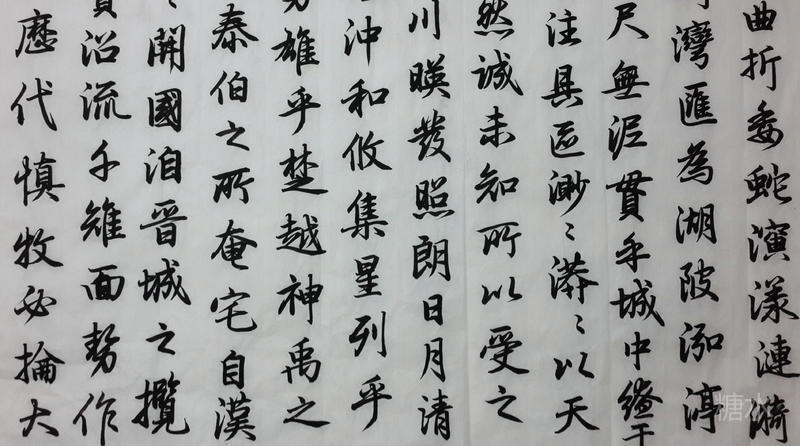 曲折委蛇演漾漣漪
灣匯為湖陂泓渟
尺無泥貫乎城中繚
注具區渺〻漭〻以天
然誠未知所以受之
川暎發照朗日月清
沖和攸集星列乎
雄乎楚越神禹之
泰伯之所奄宅自漢
開國洎晉城之攬
沿流千雉面勢作
歷代慎牧必掄大
糖水